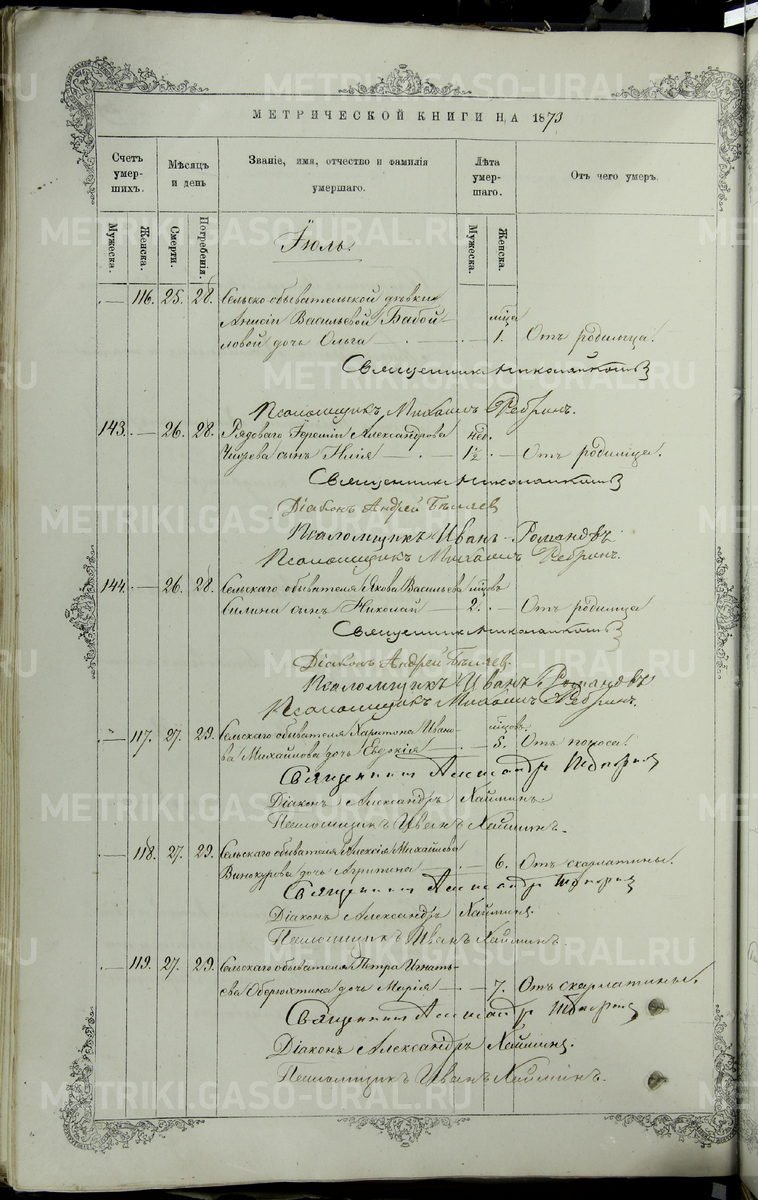 МЕТРИЧЕСКОЙ КНИГИ НА 1873
Счетъ умер- шихъ.
Мѣсяцъ и день
Званіе, имя, отчество и фамилія умершаго.
Лѣта умер- шаго.
Отъ чего умеръ.
Мужеска.
Женска.
Смерти.
Погребенія.
Мужеска.
Женска.
Іюль.
— 116. 25. 28. Сельско обывательской дѣвки
Анисіи Васильевой Бабой- мѣсяца
ловой дочь Ольга — 1. Отъ родимца.
Священникъ
Псаломщикъ Михаилъ Ребринъ.
143. — 26. 28. Рядоваго Іереміи Александрова нед.
сынъ Илія — 1½ — Отъ родимца.
Священникъ
Діаконъ Андрей Бѣляев
Псаломщикъ Иванъ Романовъ
Псаломщикъ Михаилъ Ребринъ.
144. — 26. 28. Сельскаго обывателя Якова Васильева мѣсяцовъ
Силина сынъ Николай — 2. — Отъ родимца
Священникъ
Діаконъ Андрей Бѣляев.
Псаломщикъ Иванъ Романовъ
Псаломщикъ Михаилъ Ребринъ.
— 117. 27. 29. Сельскаго обывателя Харитона Ивано- мѣсяцовъ
ва Михайлова дочь Евдокія — 5. Отъ поноса.
Священникъ Александръ
Діаконъ Александръ Хайминъ.
Псаломщикъ Иванъ Хайминъ.
— 118. 27. 29. Сельскаго обывателя Алексія Михайлова
Винокурова дочь Агрипина — 6. Отъ скарлатины.
Священникъ Александръ
Діаконъ Александръ Хайминъ.
Псаломщикъ Иванъ Хайминъ.
— 119. 27. 29. Сельскаго обывателя Петра Игнать-
ева Оберюхтина дочь Марія — 7. Отъ скарлатины.
Священникъ Александръ
Діаконъ Александръ Хайминъ.
Псаломщикъ Иванъ Хайминъ.
METRIKI.GASO-URAL.RU